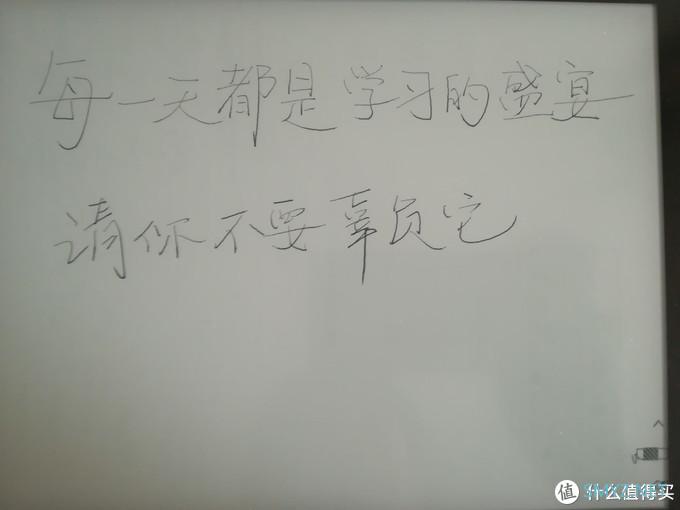 每一天都是学习的盛宴
请你不要辜负它
值 什么值得买